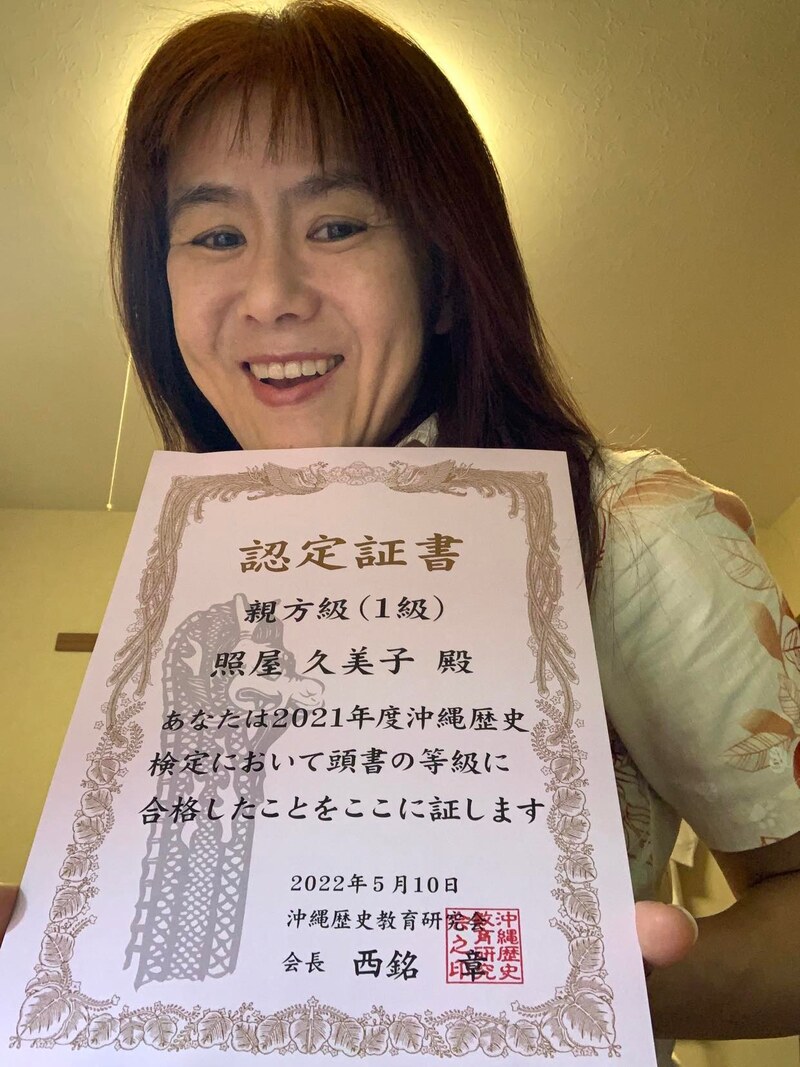 認定証書
親方級（1級）
照屋 久美子 殿
あなたは2021年度沖縄歴史
検定において頭書の等級に
合格したことをここに証します
2022年5月10日
沖縄歴史教育研究会
会長 西銘 章
沖縄歴史
教育研究
会之印